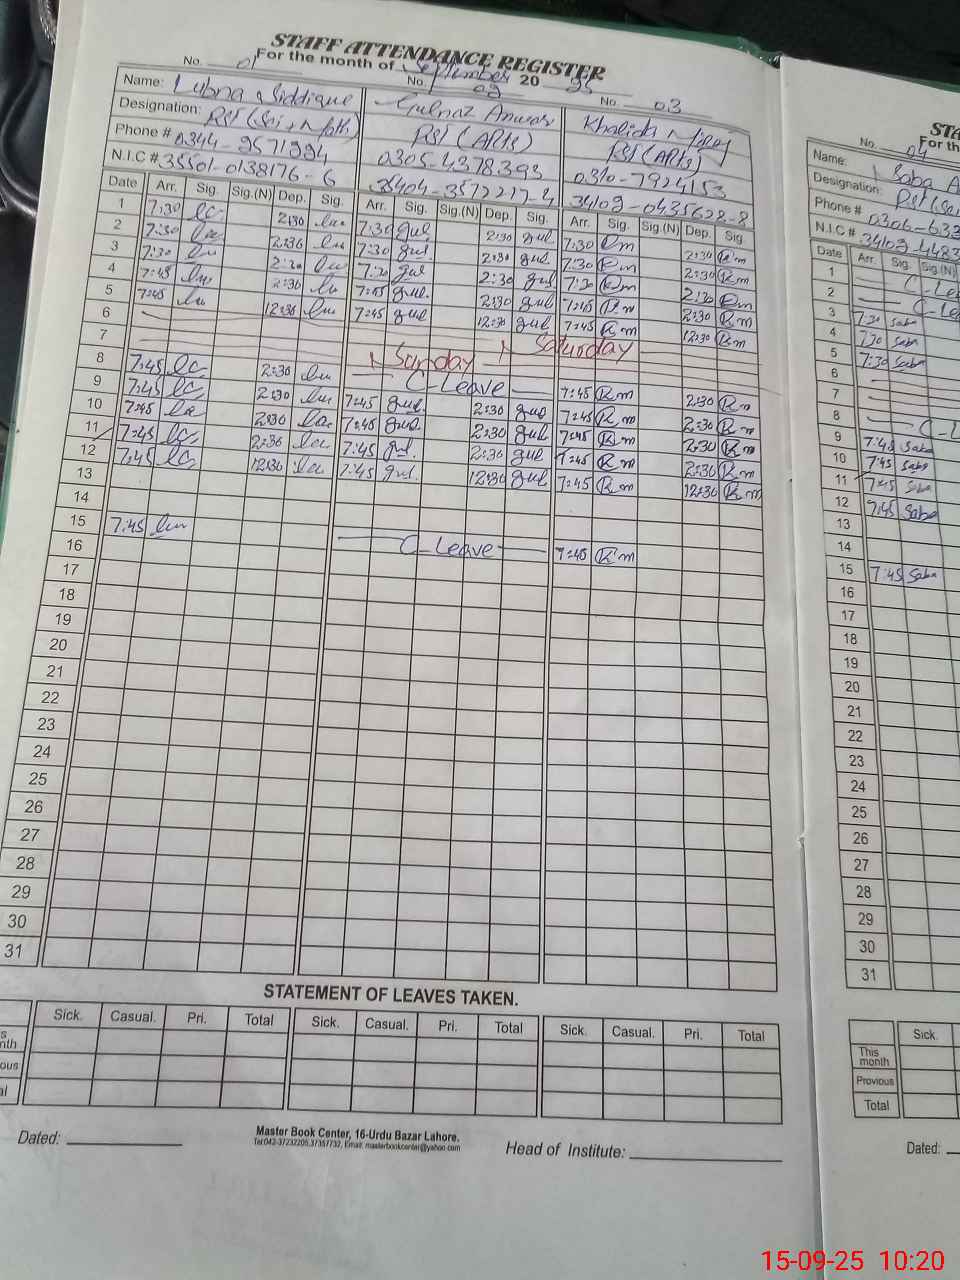 STAFF ATTENDANCE REGISTER
For the month of September 2025
No. 01 No. 02 No. 03
Name: Lubna Siddique Gulnaz Anwar Khalida
Designation: PST (Sci + Math) PST (Arts) PST (Arts)
Phone # 0344-9571994 0305-4378393 0310-7924153
N.I.C # 35501-0138176-6 35404-3572217-4 34109-0435628-8
Date Arr. Sig. Sig.(N) Dep. Sig. Arr. Sig. Sig.(N) Dep. Sig. Arr. Sig. Sig.(N) Dep. Sig.
1 7:30 2:30 7:30 gul 2:30 gul 7:30 Rm 2:30 Rm
2 7:30 2:30 7:30 gul 2:30 gul 7:30 Rm 2:30 Rm
3 7:30 2:30 7:30 gul 2:30 gul 7:30 Rm 2:30 Rm
4 7:45 2:30 7:45 gul 2:30 gul 7:45 Rm 2:30 Rm
5 7:45 12:30 7:45 gul 12:30 gul 7:45 Rm 12:30 Rm
6 Saturday
7 Sunday
8 7:45 2:30 C-Leave 7:45 Rm 2:30 Rm
9 7:45 2:30 7:45 gul 2:30 gul 7:45 Rm 2:30 Rm
10 7:45 2:30 7:45 gul 2:30 gul 7:45 Rm 2:30 Rm
11 7:45 2:30 7:45 gul 2:30 gul 7:45 Rm 2:30 Rm
12 7:45 12:30 7:45 gul 12:30 gul 7:45 Rm 12:30 Rm
13
14
15 7:45 C-Leave 7:45 Rm
16
17
18
19
20
21
22
23
24
25
26
27
28
29
30
31
STATEMENT OF LEAVES TAKEN.
Sick. Casual. Pri. Total Sick. Casual. Pri. Total Sick. Casual. Pri. Total
Dated:
Master Book Center, 16-Urdu Bazar Lahore.
Tel:042-37232205,37357732, Email: masterbookcenter@yahoo.com
Head of Institute:
STA
No. 04 For th
Name: Saba A
Designation: PST (Sci
Phone # 0306-633
N.I.C # 34109-4483
Date Arr. Sig. Sig.(N)
1 C-Lea
2 C-Lea
3 7:30 Saba
4 7:30 Saba
5 7:30 Saba
6
7
8 C-L
9 7:45 Saba
10 7:45 Saba
11 7:45 Saba
12 7:45 Saba
13
14
15 7:45 Saba
16
17
18
19
20
21
22
23
24
25
26
27
28
29
30
31
Sick.
This month
Previous
Total
Dated:
15-09-25 10:20